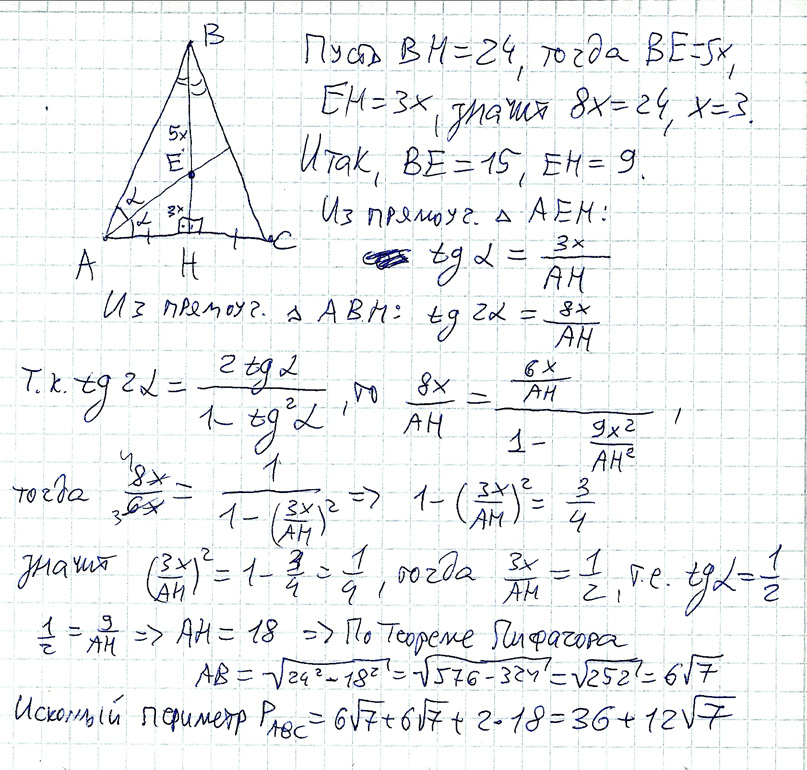 B
Пусть BH=24, тогда BE=5x,
EH=3x, значит 8x=24, x=3.
5x
E
Итак, BE=15, EH=9.
α
α
3x
Из прямоуг. △ AEH:
A
H
C
tg α = 3x/AH
Из прямоуг. △ ABH: tg 2α = 8x/AH
Т.к. tg 2α = 2 tg α / (1 - tg²α), то 8x/AH = (6x/AH) / (1 - 9x²/AH²),
тогда 4 8x / 3 6x = 1 / (1 - (3x/AH)²) => 1 - (3x/AH)² = 3/4
значит (3x/AH)² = 1 - 3/4 = 1/4, тогда 3x/AH = 1/2, т.е. tg α = 1/2
1/2 = 9/AH => AH = 18 => По теореме Пифагора
AB = √(24² - 18²) = √(576 - 324) = √252 = 6√7
Искомый периметр P_ABC = 6√7 + 6√7 + 2·18 = 36 + 12√7